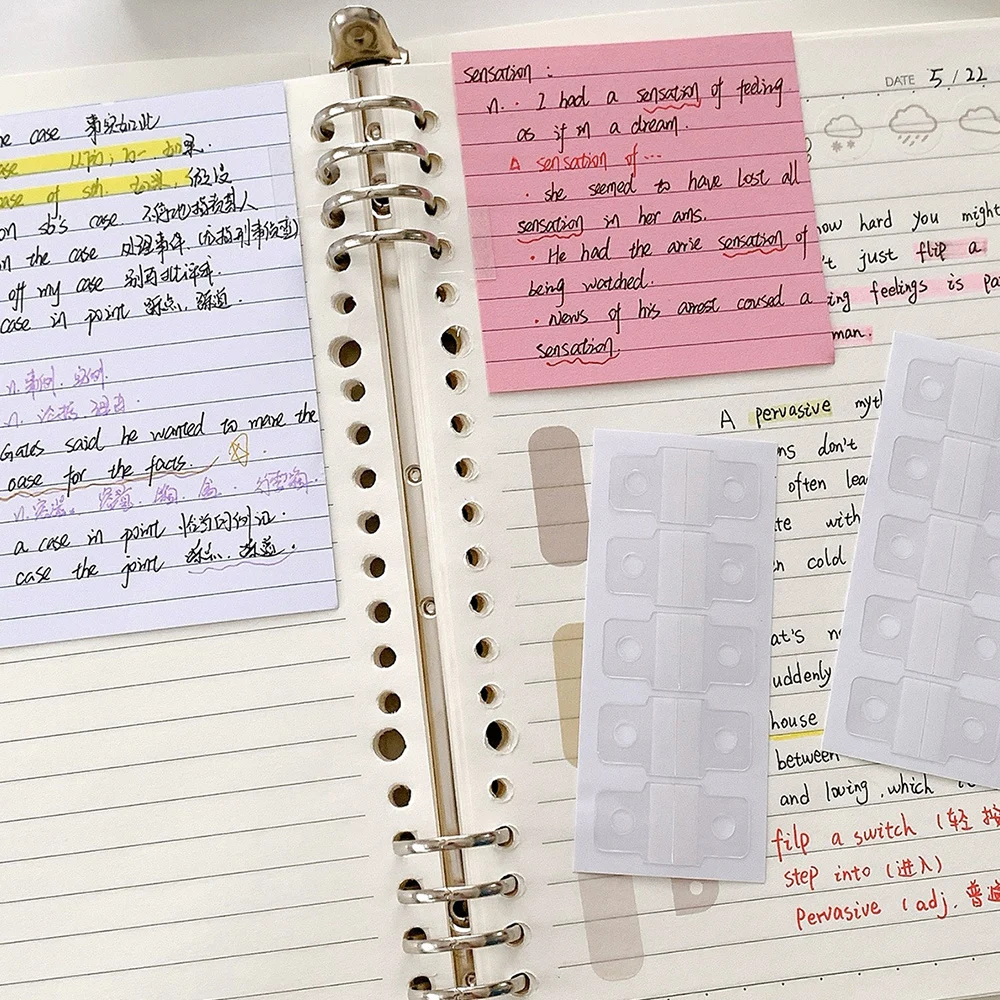 he case 事实如此
ase
ase of sth. 如果, 假设
on sb's case
n the case 处理事件.
off my case 别再批评我.
case in point
n. 事例. 实例
n.
Gates said he wanted to make the
case for the facts.
a case in point 恰当的例证.
case the joint
sensation :
n.. I had a sensation of feeling
as if in a dream.
a sensation of ...
· she seemed to have lost all
sensation in her arms.
· He had the arrie sensation of
being watched.
· News of his arrest caused a
sensation.
DATE 5 / 22
how hard you might
't just flip a
ing feelings is pa
man.
A pervasive myt
ns don't
often lea
te with
n cold
at's n
uddenly
house
between
and loving, which
filp a switch (轻 按
step into (进入)
pervasive (adj. 普遍